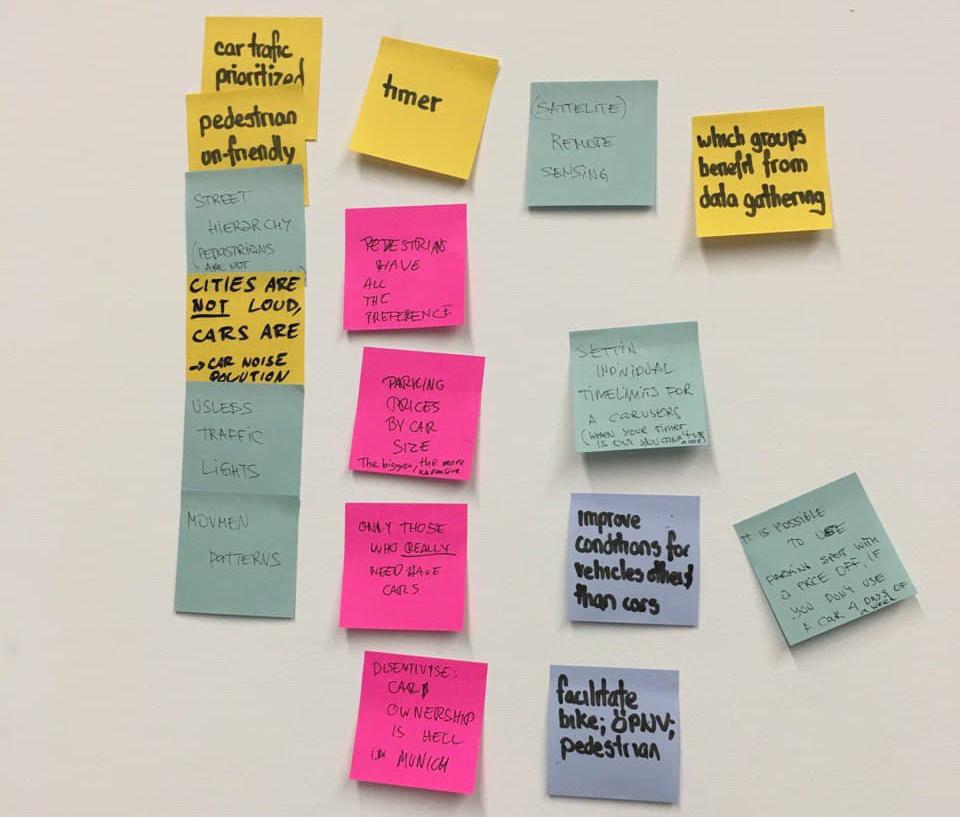 car trafic
prioritized
pedestrian
un-friendly
STREET
HIERARCHY
(PEDASTRIANS
ARE NOT
CITIES ARE
NOT LOUD,
CARS ARE
→ CAR NOISE
POLUTION
USLESS
TRAFFIC
LIGHTS
MOVMEN
PATTERNS
timer
PEDESTRIAN
HAVE
ALL
THE
PREFERENCE
PARKING
PRICES
BY CAR
SIZE
The bigger, the more
expensive
ONLY THOSE
WHO REALLY
NEED HAVE
CARS
DISENTIVISE:
CAR
OWNERSHIP
IS HELL
IN MUNICH
(SATTELITE)
REMOTE
SENSING
SETTIN
INDIVIDUAL
TIMELIMITS FOR
A CARUSERS
(WHEN YOUR TIMER
IS OUT YOU CAN'T USE
improve
conditions for
vehicles others
than cars
facilitate
bike; ÖPNV;
pedestrian
which groups
benefit from
data gathering
IT IS POSSIBLE
TO USE
PARKING SPOT WITH
A PRICE OFF, IF
YOU DON'T USE
A CAR 4 DAYS OF
A WEEK